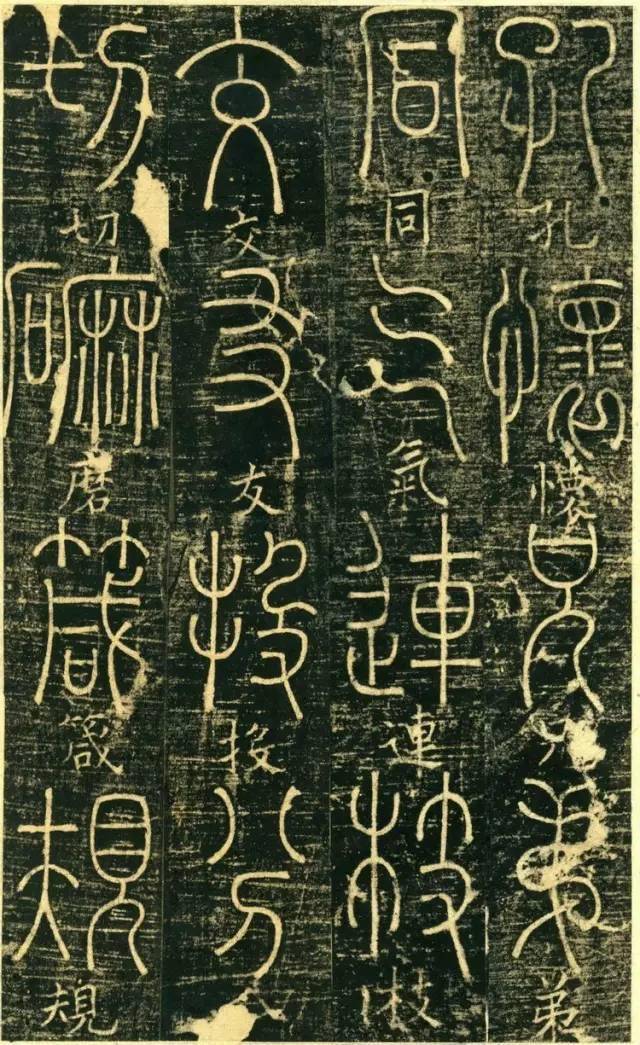 孔孔懷懷兄兄弟弟
同同氣氣連連枝枝
交交友友投投分
切切磨磨箴箴規規